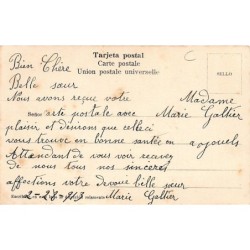 Tarjeta postal
Carte postale
Union postale universelle
SELLO
Bien Chère
Belle sœur
Nous avons reçue votre
carte postale avec
plaisir et desirons que celleci
vous trouve en bonne santée en
Attendant de vous voir recevez
de nous tous nos sinceret
affections votre devoue belle sœur
Marie Galtier
Madame
Marie Galtier